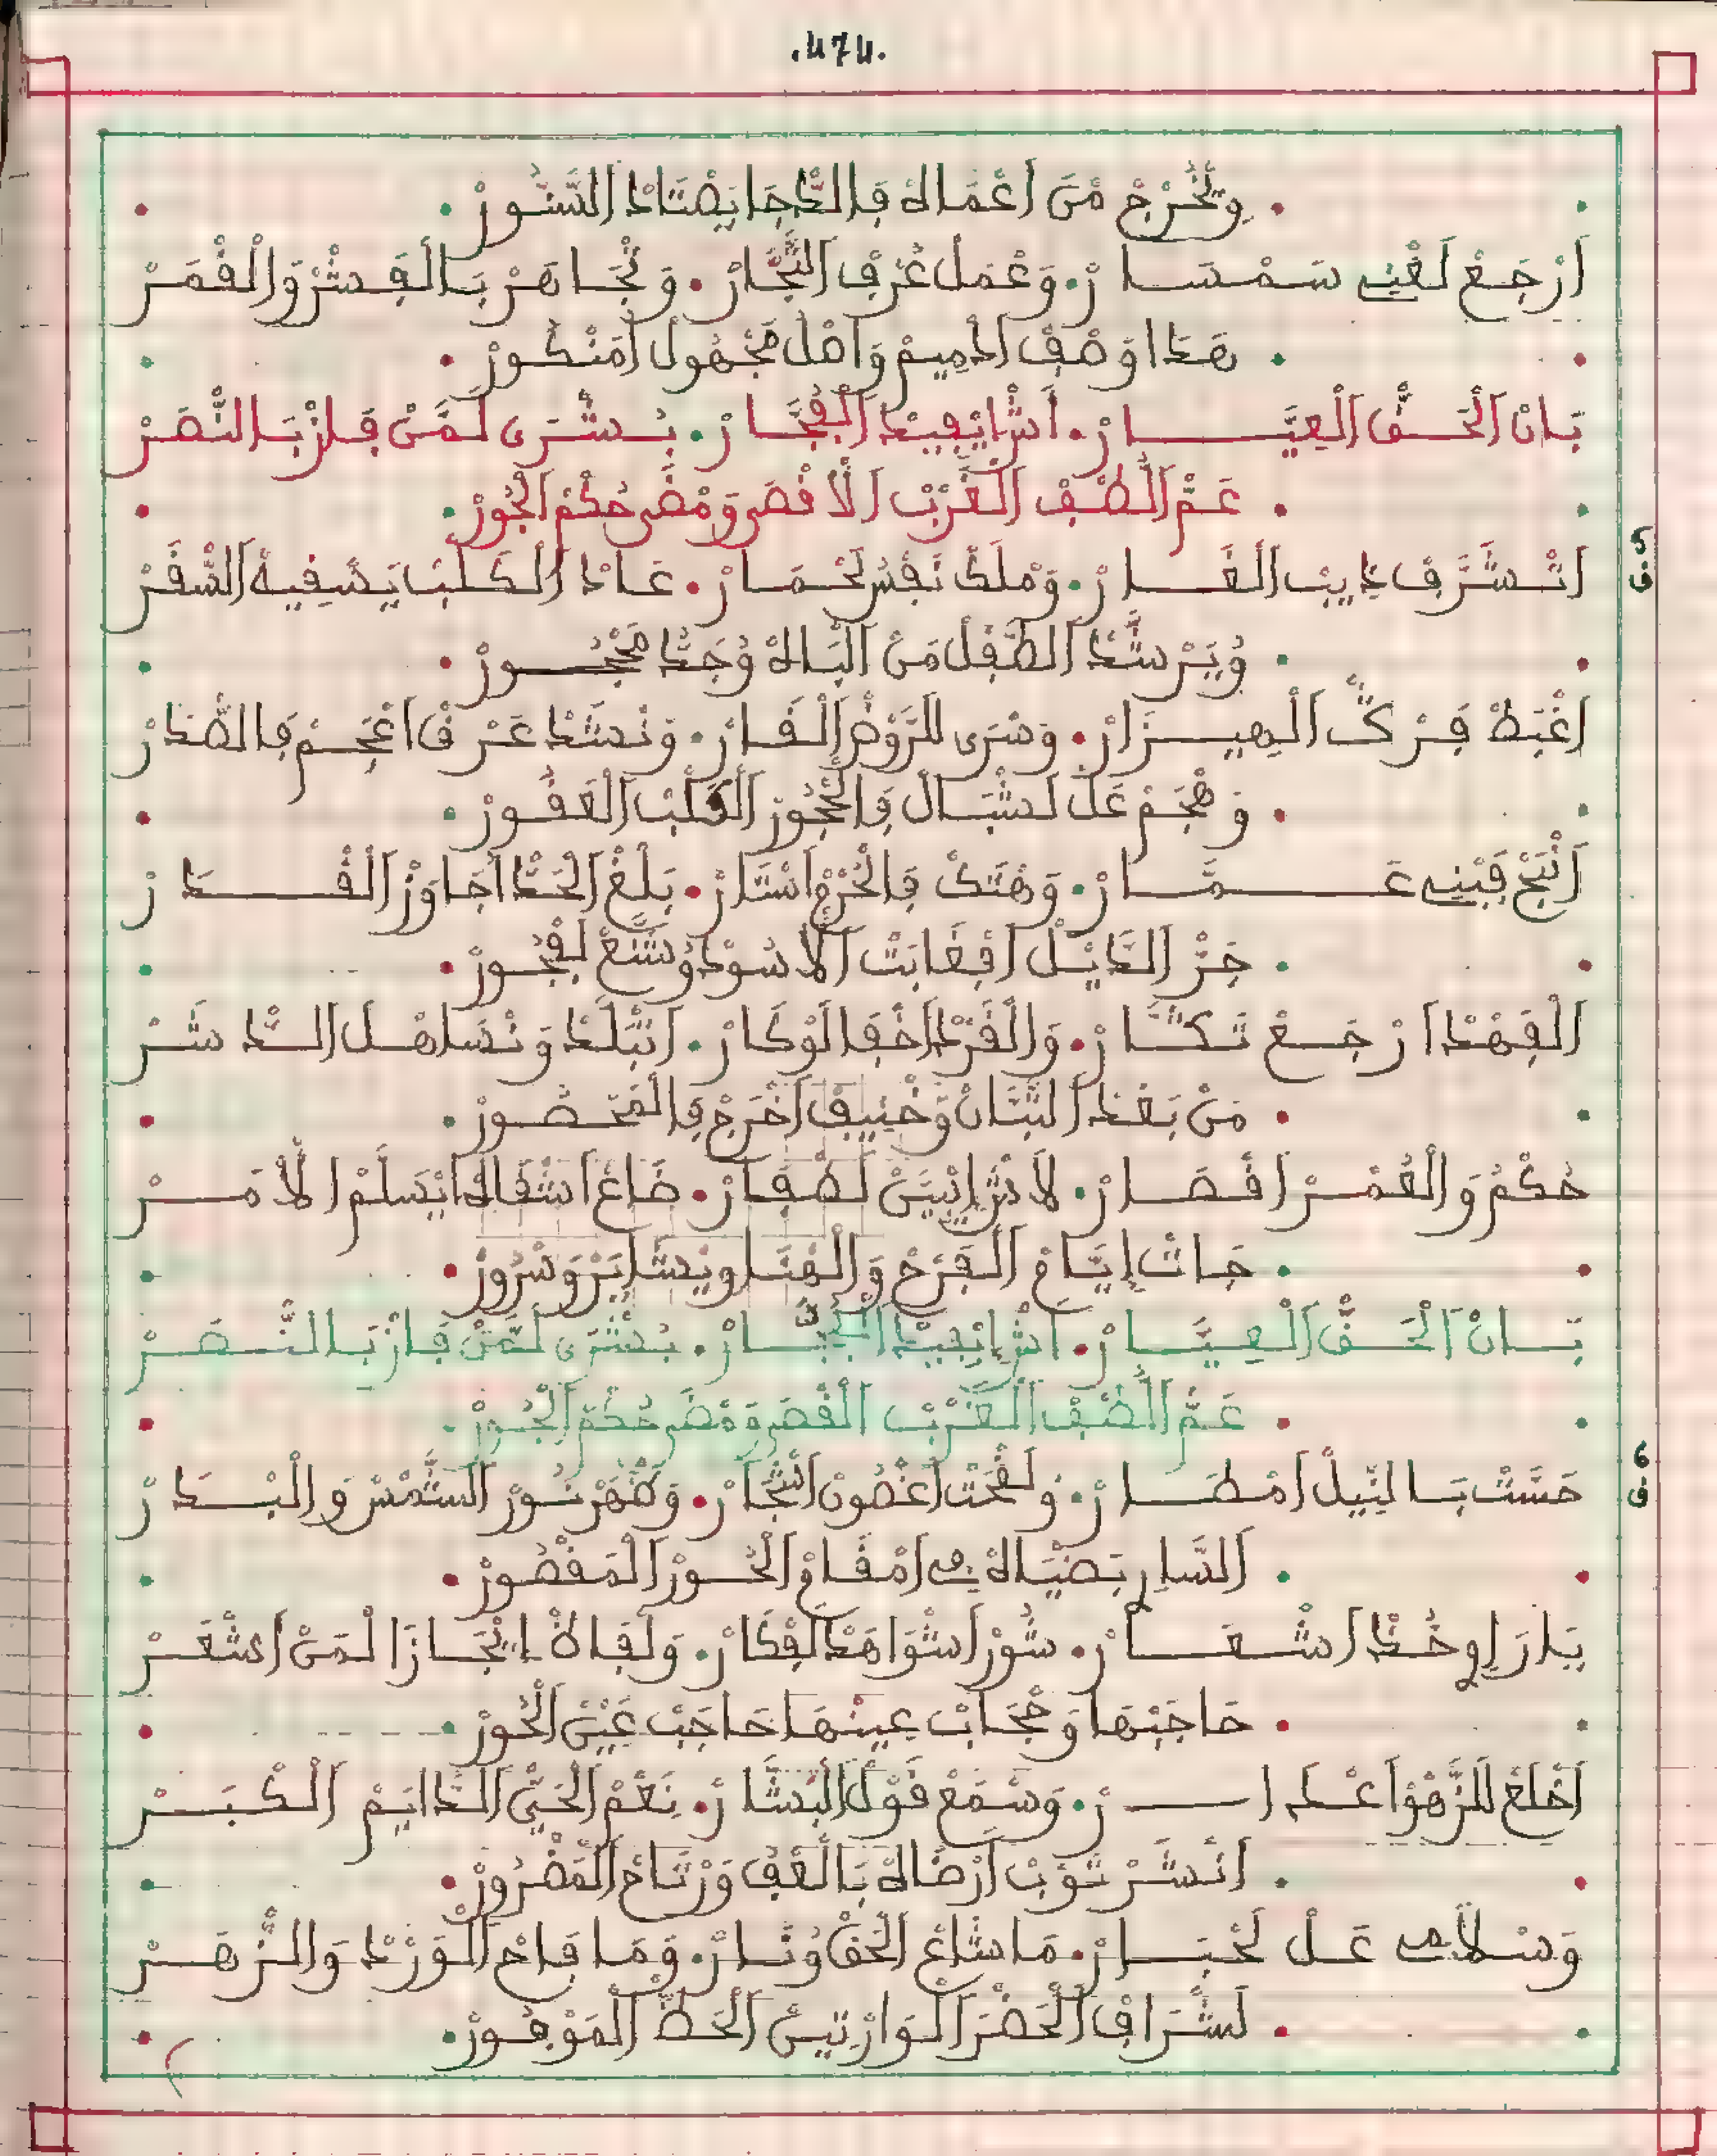 .474.
وِتُّخْرْجْ مْنَ اَعْمَالهْ فَالدّْجَا يَصْتَادْ السَّنُّورْ
اَرْجَعْ لَغْنِي سَمْسَارْ. وَعْمَل عُرْف التُّجَّارْ. وَتْجَاهَرْ بَالْفِسْقْ وَالْقْمَرْ
هَدَا وَصْف الدْمِيمْ وَاصْلْ مَجْهُولْ اَمَنْكُورْ
بَانْ الْحَقّْ الْعِيَّارْ. اَشْ ايْفِيدْ الْفُجَّارْ. بُشْرَى لَمَّنْ فَازْ بَالنّْصَرْ
عَمّْ اللُّطْفْ الْغَرْبْ الَا قْصَى وَمْضَى حُكْمْ الْجُورْ
5
ف
اَتْشَرَّفْ دِيبْ الْغَارْ. وَمْلَكْ نَفْس لَحْمَارْ. عَادْ الْكَلْبْ يَسْقِيهْ السّْفَرْ
وُيَرْشَّدْ الطّْفَلْ مَنْ الْبَالهْ وُجَدُّ مَحْجُورْ
اَغْبَطْ فَرْكّْ الْهِيزَارْ. وَسْرَى للرَّوْضْ الْفَارْ. وَنْشَدْ عَرْ فْ اَعْجَمْ فَالصّْدَارْ
وَهْجَمْ عَلْ لَشْبَالْ فَالْحْجُورْ الْكَلْبْ الْعَقُورْ
اَنْبَحْ فَبْنِي عَمَّارْ. وَهْتَكْ فَالْحْرَمْ اسْتَارْ. بَلْغْ الْحَدّْ اَجَاوَزْ الْقَدَارْ
جَرّْ الدَّيْلْ اَفْغَابَتْ الَاسُودْ وُشَنَّعْ لَفْجُورْ
الْفَهْدْ ارْجَعْ نَكَّارْ. وَالْقَرْدْ اَخْفَا لَوْكَارْ. اَتْبَلَّدْ وَتْسَاهْلْ الدَّشَرْ
مَنْ بَعْدْ التّْبَانْ وَخْنِيفْ اَخْرَجْ فَالْمَحْضُورْ
حُكْمُ وَالْعُمْرْ اَقْصَارْ. لَاشْ ايْبَيَّنْ لَصْفَارْ. ضَاعْ اَشْقَالهْ ايْسَلَّمْ الَامَرْ
جَاتْ ايَّامْ الْفَرْحْ وَالْهْنَا وِبْشَايَرْ وَسْرُورْ
بَانْ الْحَقّْ الْعِيَّارْ. اَشْ ايْفِيدْ الْفُجَّارْ. بُشْرَى لَمَّنْ فَازْ بَالنّْصَرْ
عَمّْ اللُّطْفْ الْغَرْبْ الَقْصَى وَمْضَى حُكْمْ الْجُورْ
6
ف
حَنَّتْ بَالنِّيلْ اَمْطَارْ. وَلَقْحَتْ اَغْصُونْ اشْجَارْ. وَظْهَرْ نُورْ الشَّمْسْ وَالْبْدَارْ
السَّارِ بَضْيَالهْ فِي اَمْقَامْ الْحُورْ الْمَقْصُورْ
يَارَاوِ خُدْ اشْعَارْ. شُورْ اشْوَاهَدْ لَفْكَارْ. وَلْقَاهْ ايْجَازَا لْمَنْ اَشْعَرْ
حَاجَبْهَا وَحْجَابْ عِينْهَا حَاجَبْ عَيْنْ الْحُورْ
اَخْلَعْ للزّْهُوْ اَعْدَارْ. وَسْمَعْ قَوْلْ الْبَشَّارْ. نَعْمْ الْحَيّْ الدَّايَمْ الْكْبَرْ
اَنْشَرْ تَوْبْ اَرْضَالهْ بَالْعْفُ وَرْتَاحْ الْمَضْرُورْ
وَسْلَامِي عَلْ لَحْبَارْ. مَا شَاعْ الْحَقّْ وُنَارْ. وَمَا فَاحْ الْوَرْدْ وَالزّْهَرْ
لَشْرَافْ الْحَضْرَ الْوَارْتِينْ الْحَظّْ الْمَوْفُورْ